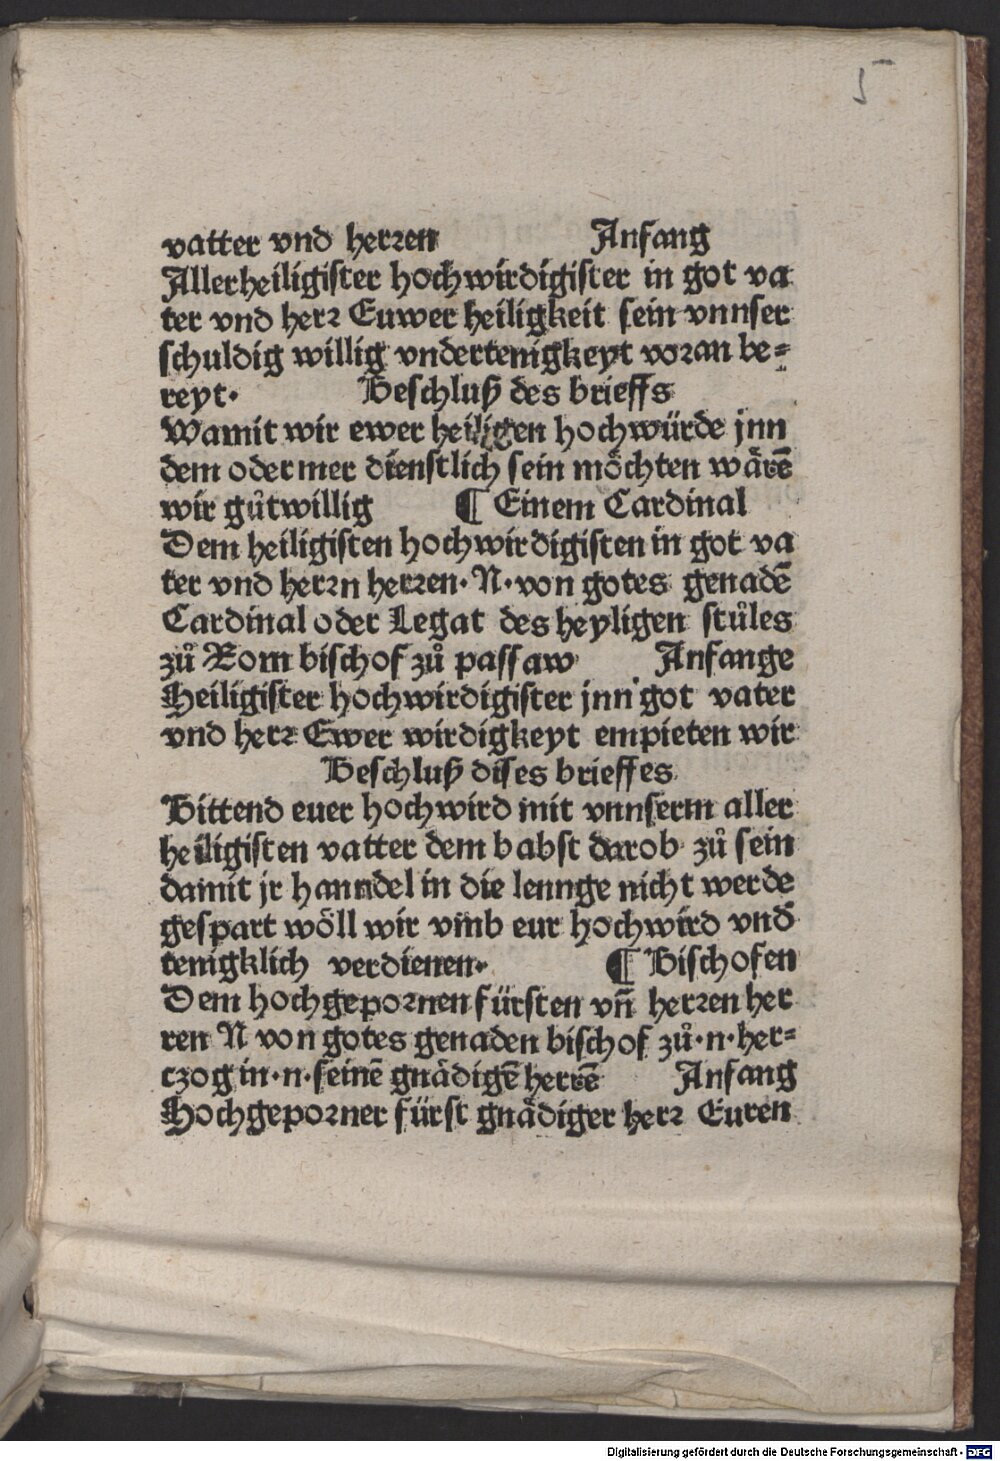 5
vatter vnd herꝛen Anfang
Allerheiligister hochwirdigister in got va
ter vnd herꝛ Euwer heiligkeit sein vnnser
schuldig willig vndertenigkeyt voꝛan be⸗
reyt· Beschluß des brieffs
Wamit wir ewer heiligen hochwürde jnn
dem oder mer dienstlich sein möchten wärē
wir gůtwillig ¶ Einem Cardinal
Dem heiligisten hochwirdigisten in got va
ter vnd herꝛn herꝛen· N· von gotes genadē
Cardinal oder Legat des heyligen stůles
zů Rom bischof zů passaw Anfange
Heiligister hochwirdigister jnn got vater
vnd herꝛ Ewer wirdigkeyt empieten wir
Beschluß dises brieffes
Bittend euer hochwird mit vnnserm aller
heiligisten vatter dem babst darob zů sein
damit jr hanndel in die lennge nicht werde
gespart wöll wir vmb eur hochwird vnd̄
tenigklich verdienen· ¶ Bischofen
Dem hochgepoꝛnen fürsten vn̄ herꝛen her
ren N von gotes genaden bischof zů·n·her⸗
czog in·n·seinē gnädigē herrē Anfang
Hochgepoꝛner fürst gnädiger herꝛ Euren
Digitalisierung gefördert durch die Deutsche Forschungsgemeinschaft - DFG